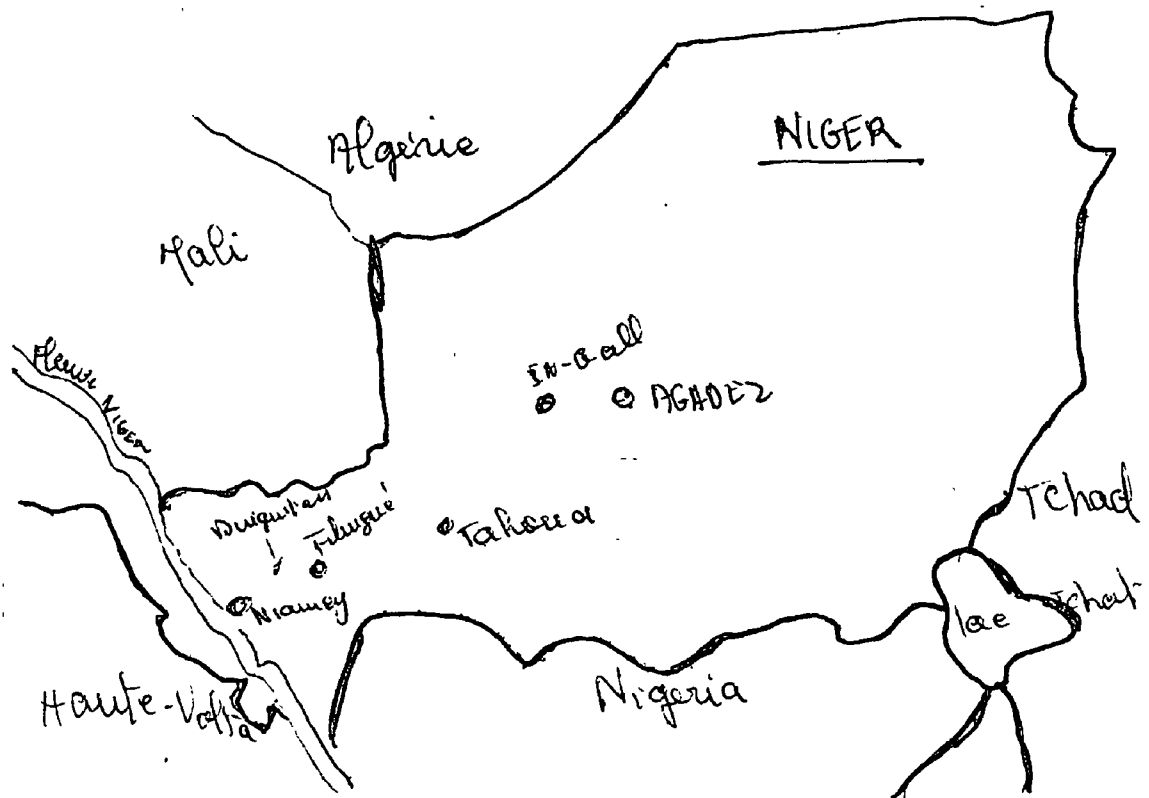 Algérie
NIGER
Mali
Fleuve NIGER
IN-Gall
AGADEZ
Tchad
Tahoua
Filingué
Niamey
lac Tchat
Haute-Volta
Nigeria